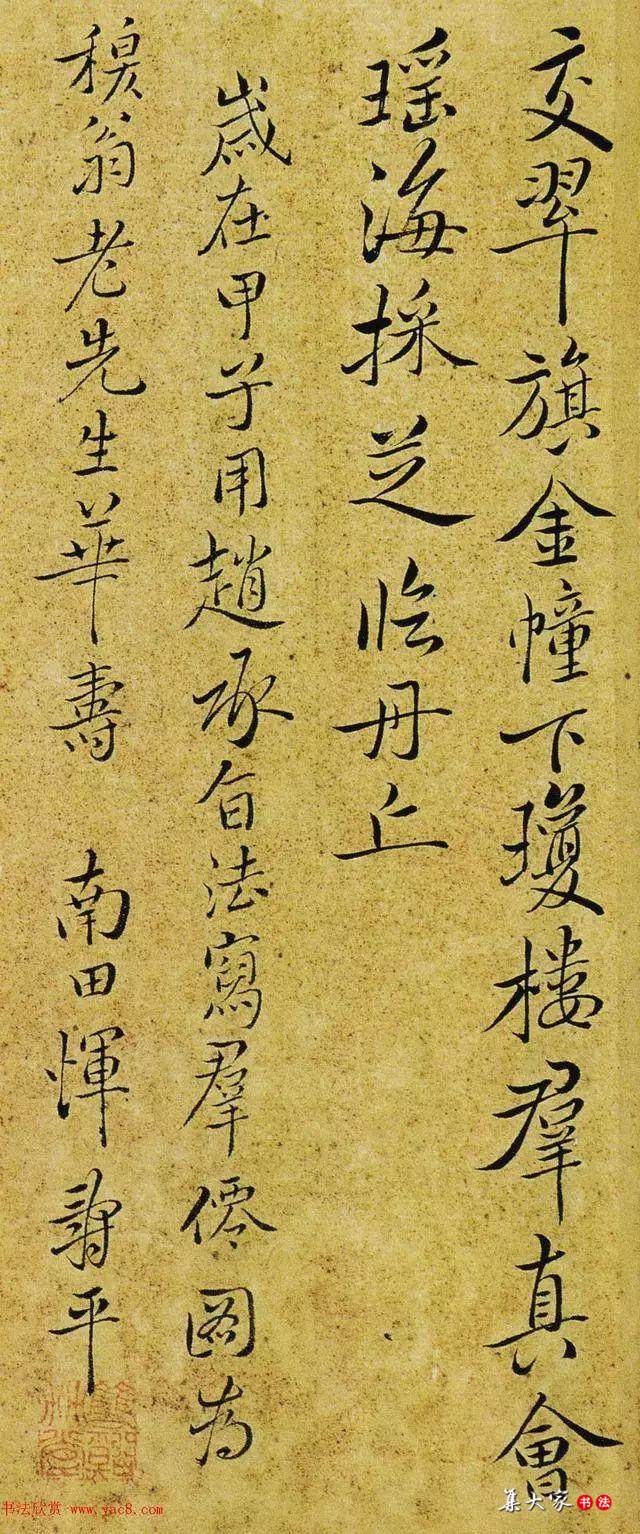 交翠旗金幢下瓊樓羣真會
瑶海採芝臨丹丘
歲在甲子用趙承旨法寫羣僊圖為
穉翁老先生華壽 南田惲壽平
书法欣赏 www.yac8.com
集大家 书法